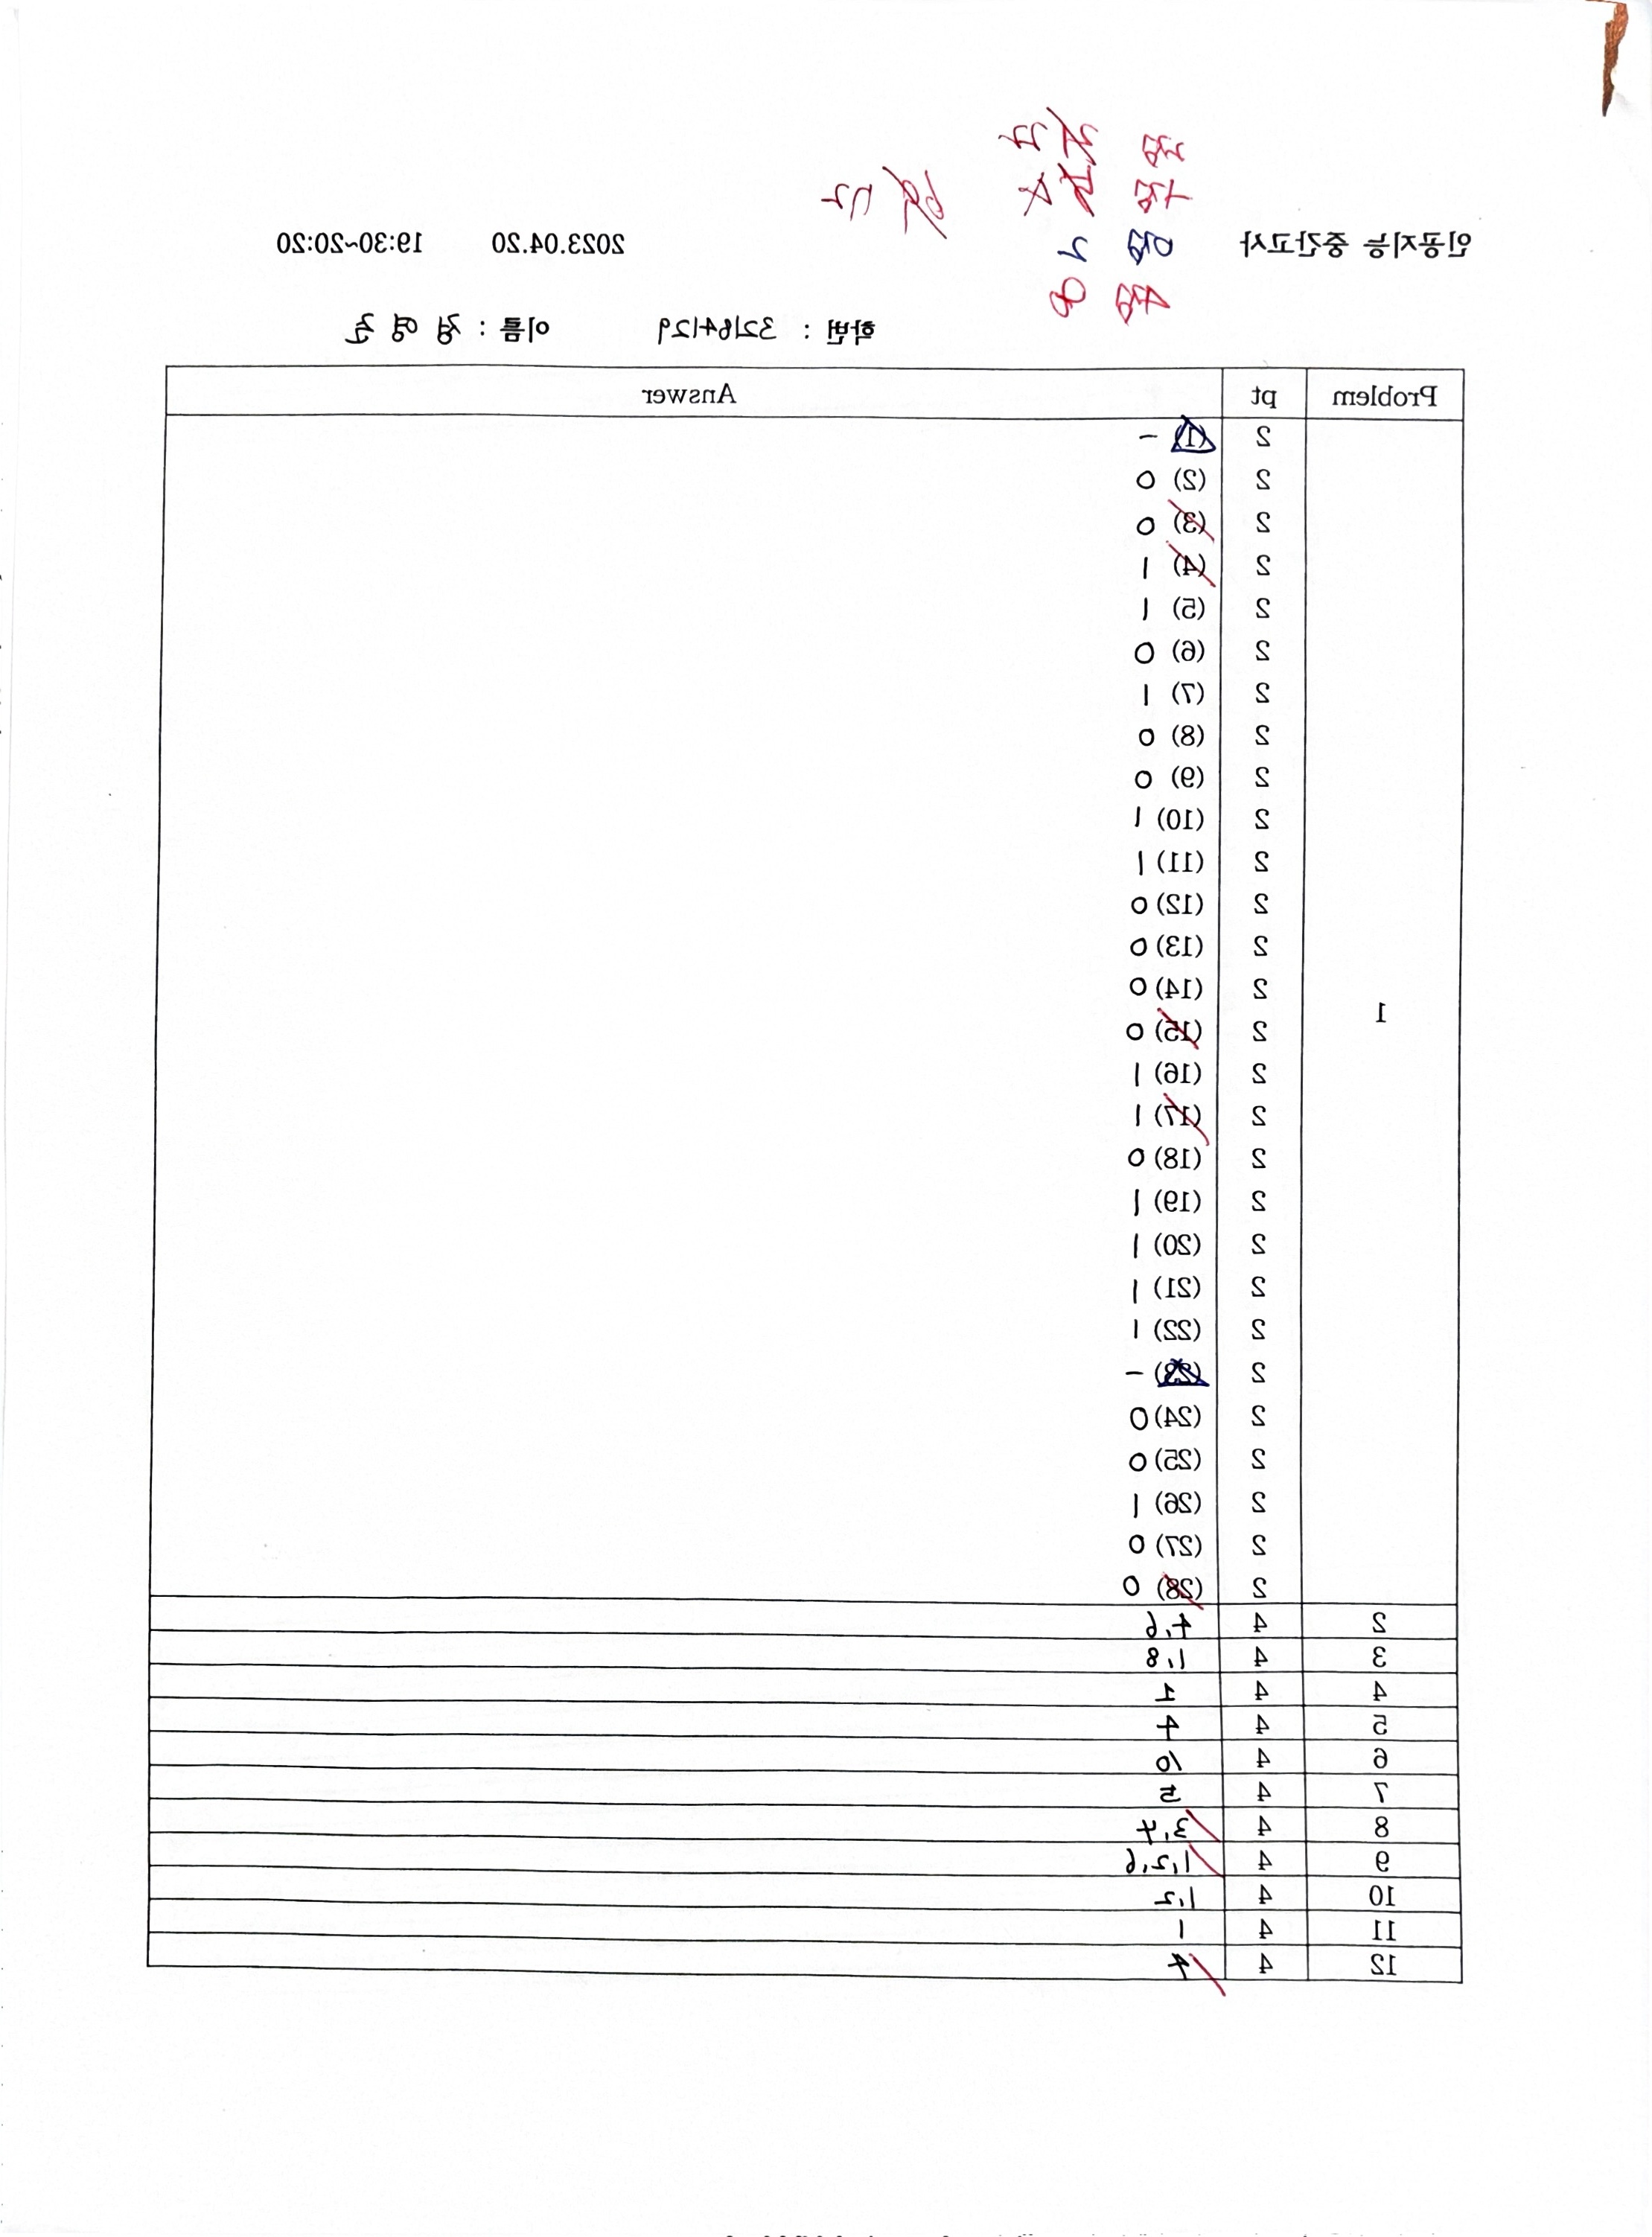 인공지능 중간고사 2023.04.20 19:30~20:20
학번 : 32164129 이름 : 정영준
Problem pt Answer
1
2 (1) -
2 (2) 0
2 (3) 0
2 (4) 1
2 (5) 1
2 (6) 0
2 (7) 1
2 (8) 0
2 (9) 0
2 (10) 1
2 (11) 1
2 (12) 0
2 (13) 0
2 (14) 0
2 (15) 0
2 (16) 1
2 (17) 1
2 (18) 0
2 (19) 1
2 (20) 1
2 (21) 1
2 (22) 1
2 (23) -
2 (24) 0
2 (25) 0
2 (26) 1
2 (27) 0
2 (28) 0
2 4 4,6
3 4 1,8
4 4 1
5 4 4
6 4 10
7 4 5
8 4 3,4
9 4 1,2,6
10 4 1,2
11 4 1
12 4 4